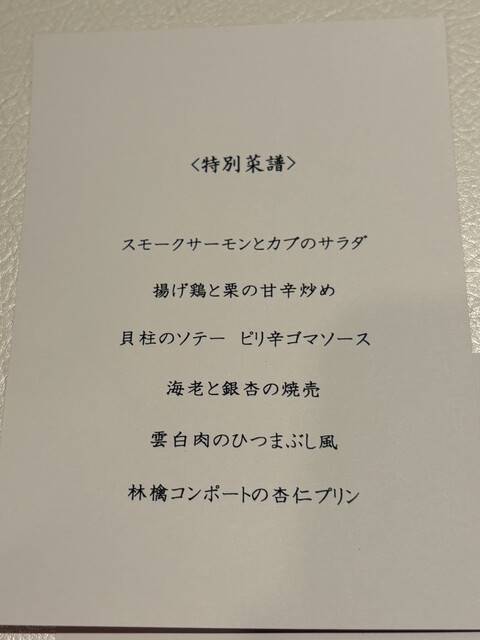 <特別菜譜>
スモークサーモンとカブのサラダ
揚げ鶏と栗の甘辛炒め
貝柱のソテー ピリ辛ゴマソース
海老と銀杏の焼売
雲白肉のひつまぶし風
林檎コンポートの杏仁プリン